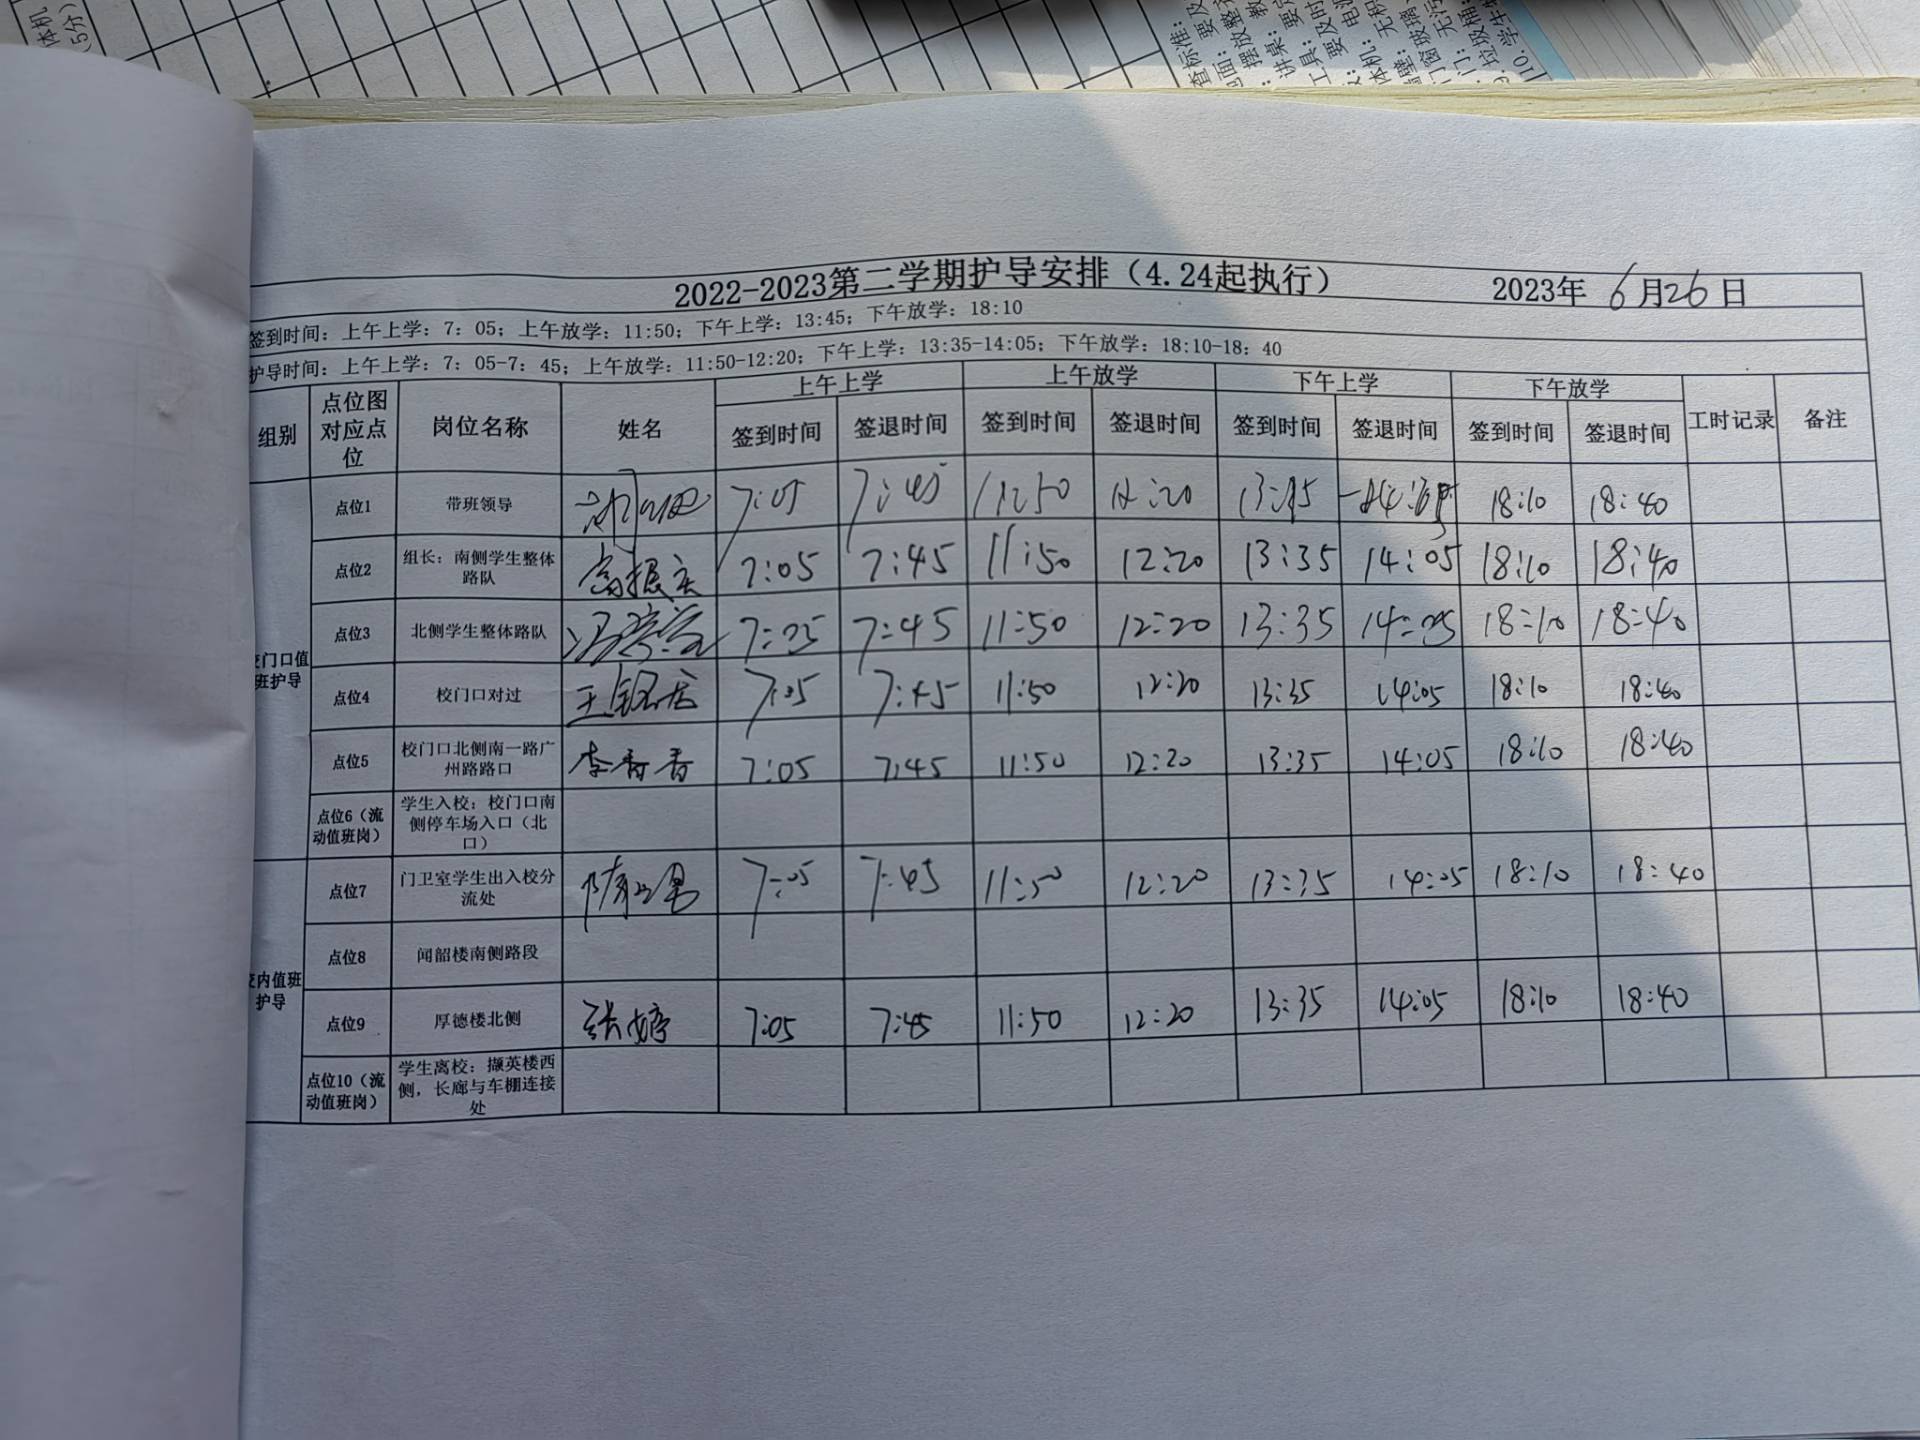 2022-2023第二学期护导安排（4.24起执行） 2023年 6月26日
签到时间：上午上学：7：05；上午放学：11:50；下午上学：13:45；下午放学：18:10
护导时间：上午上学：7：05-7：45；上午放学：11:50-12:20；下午上学：13:35-14:05；下午放学：18:10-18：40
组别 点位图对应点位 岗位名称 姓名 上午上学 上午放学 下午上学 下午放学 工时记录 备注
签到时间 签退时间 签到时间 签退时间 签到时间 签退时间 签到时间 签退时间
门口值班护导
点位1 带班领导 7:05 7:45 11:50 12:20 18:10 18:40
点位2 组长：南侧学生整体路队 高振 7:05 7:45 11:50 12:20 13:35 14:05 18:10 18:40
点位3 北侧学生整体路队 冯 7:45 11:50 12:20 13:35 14:05 18:10 18:40
点位4 校门口对过 王 7:05 7:45 11:50 12:20 13:35 14:05 18:10 18:40
点位5 校门口北侧南一路广州路路口 李香香 7:05 7:45 11:50 12:20 13:35 14:05 18:10 18:40
点位6（流动值班岗） 学生入校：校门口南侧停车场入口（北口）
内值班护导
点位7 门卫室学生出入校分流处 7:05 7:45 11:50 12:20 13:35 14:05 18:10 18:40
点位8 闻韶楼南侧路段
点位9 厚德楼北侧 张婷 7:05 7:45 11:50 12:20 13:35 14:05 18:10 18:40
点位10（流动值班岗） 学生离校：撷英楼西侧，长廊与车棚连接处